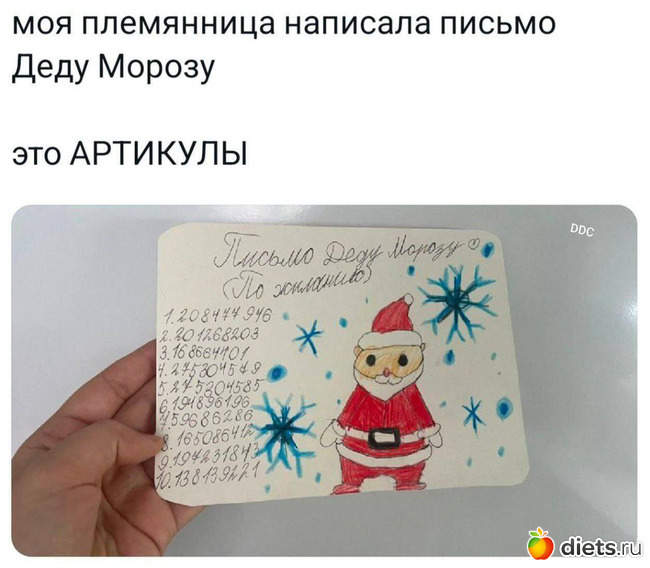 моя племянница написала письмо
Деду Морозу
это АРТИКУЛЫ
DDC
Письмо Деду Морозу ♡
(По желанию)
1. 208444946
2. 201268203
3. 168664101
4. 275304549
5. 275304585
6. 194896196
7. 459686286
8. 165086412
9. 194231843
10. 138139221
diets.ru